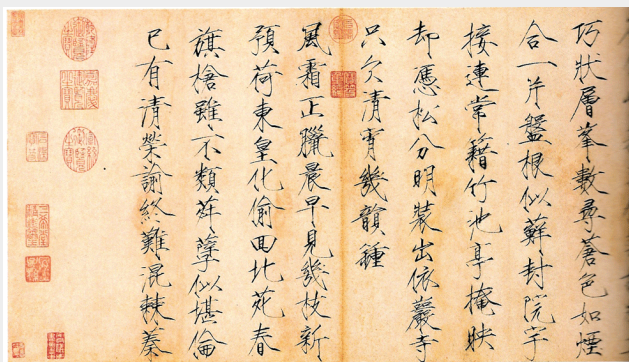 巧狀層峯數尋蒼色如煙
合一片盤根似蘚封院宇
接連常藉竹池亭掩映
却憑松分明裝出依巖寺
只欠清宵幾韻鐘
風霜正臘晨早見幾枝新
預荷東皇化偷囬北苑春
旗槍雖不類荈孽似堪倫
已有清榮諭終難混棘蓁